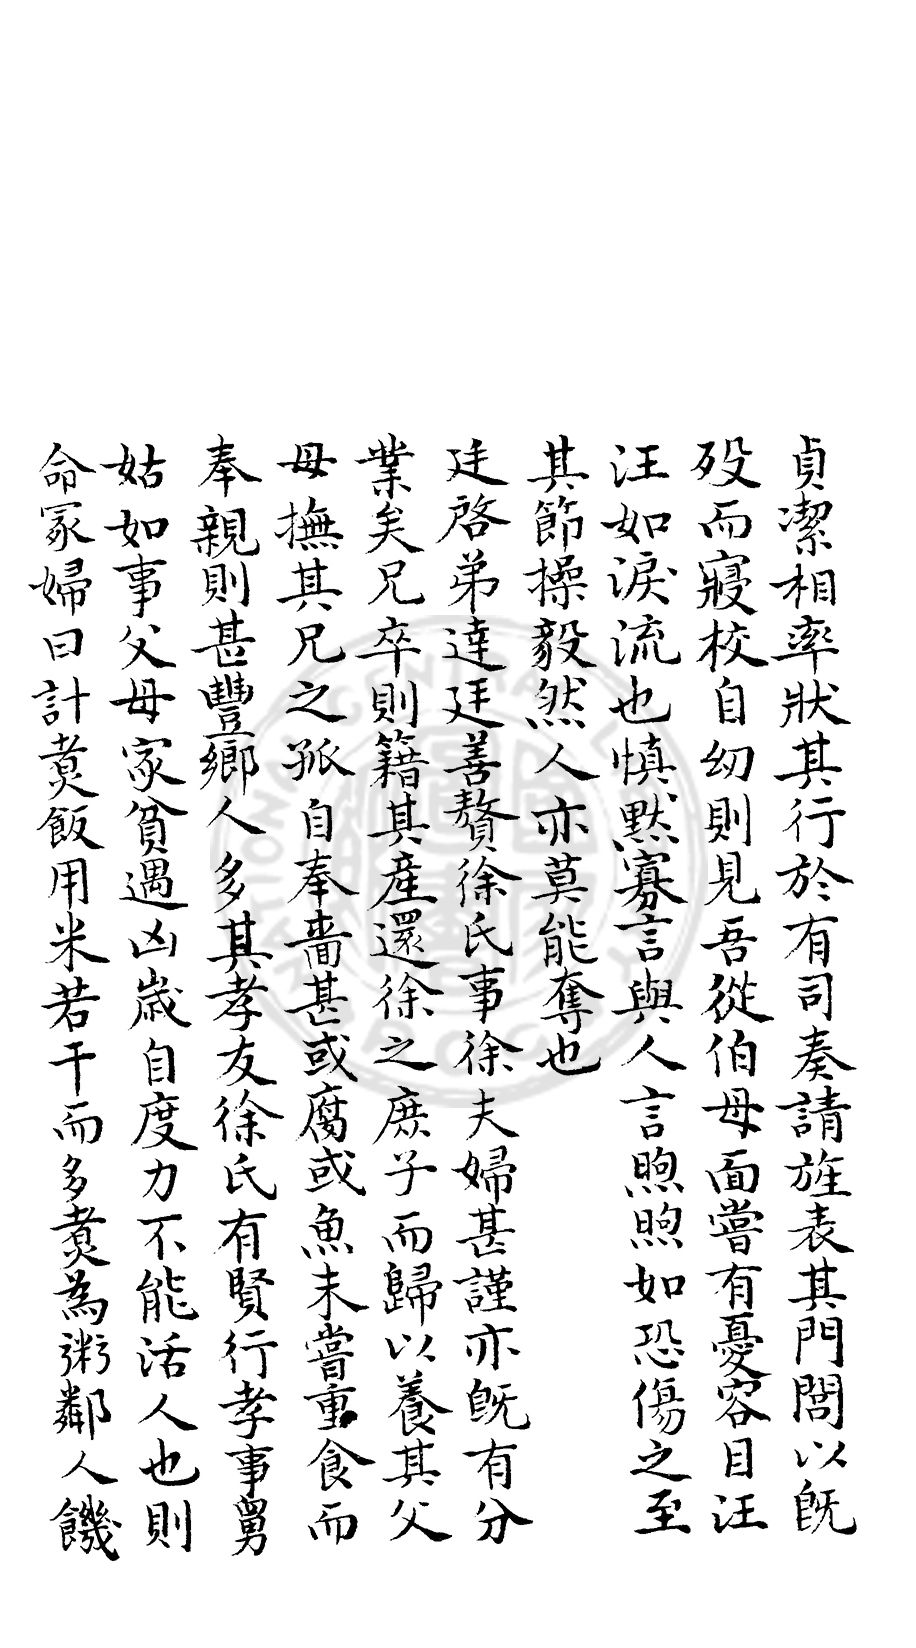 貞潔相率狀其行於有司奏請旌表其門閭以旣
歿而寢校自幼則見吾從伯母面嘗有憂容目汪
汪如淚流也慎默寡言與人言煦煦如恐傷之至
其節操毅然人亦莫能奪也
廷啓弟達廷善贅徐氏事徐夫婦甚謹亦旣有分
業矣兄卒則籍其產還徐之庶子而歸以養其父
母撫其兄之孤自奉嗇甚或腐或魚未嘗重食而
奉親則甚豐鄉人多其孝友徐氏有賢行孝事舅
姑如事父母家貧遇凶歲自度力不能活人也則
命冢婦曰計煑飯用米若干而多煑為粥鄰人饑